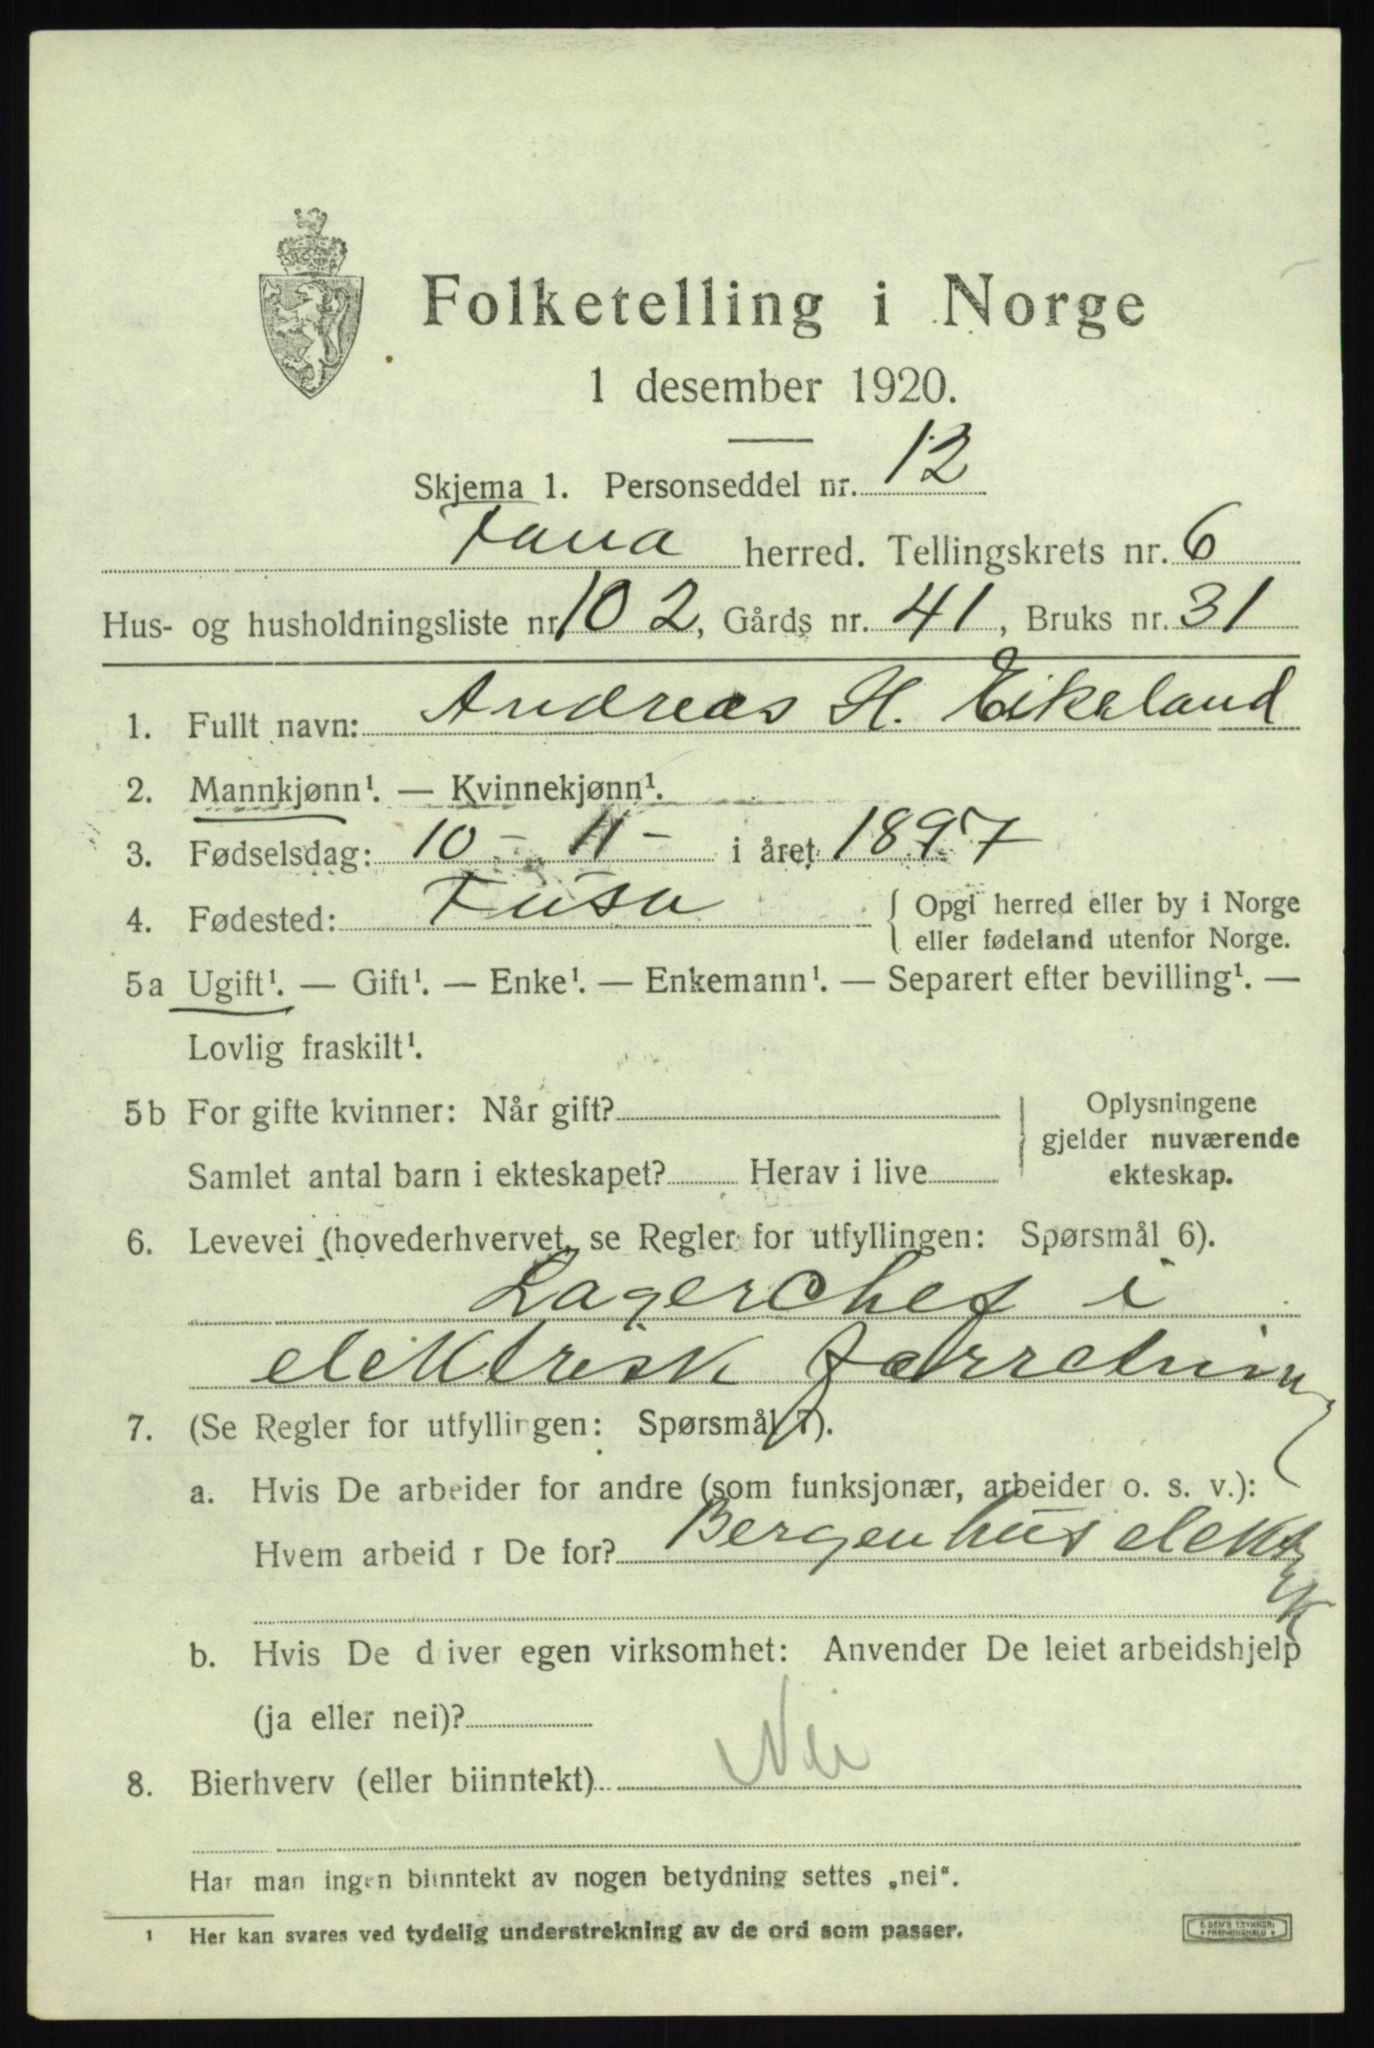 Folketelling i Norge
1 desember 1920.
Skjema 1. Personseddel nr. 12
Fana herred. Tellingskrets nr. 6
Hus- og husholdningsliste nr. 102, Gårds nr. 41, Bruks nr. 31
1. Fullt navn: Andreas H. Eikeland
2. Mannkjønn¹. — Kvinnekjønn¹.
3. Fødselsdag: 10 - 11 - i året 1897
4. Fødested: Fusa { Opgi herred eller by i Norge
eller fødeland utenfor Norge.
5a Ugift¹. — Gift¹. — Enke¹. — Enkemann¹. — Separert efter bevilling¹. —
Lovlig fraskilt¹.
5b For gifte kvinner: Når gift? Oplysningene
gjelder nuværende
Samlet antal barn i ekteskapet? Herav i live ekteskap.
6. Levevei (hovederhvervet, se Regler for utfyllingen: Spørsmål 6).
Lagerchef i
elektrisk forretning
7. (Se Regler for utfyllingen: Spørsmål 7).
a. Hvis De arbeider for andre (som funksjonær, arbeider o. s. v.):
Hvem arbeid r De for? Bergenhus elektr
b. Hvis De d iver egen virksomhet: Anvender De leiet arbeidshjelp
(ja eller nei)?
8. Bierhverv (eller biinntekt) Nei
Har man ingen biinntekt av nogen betydning settes „nei“.
¹ Her kan svares ved tydelig understrekning av de ord som passer.